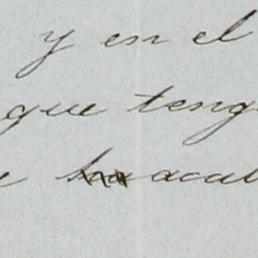 y en el
que teng
acul